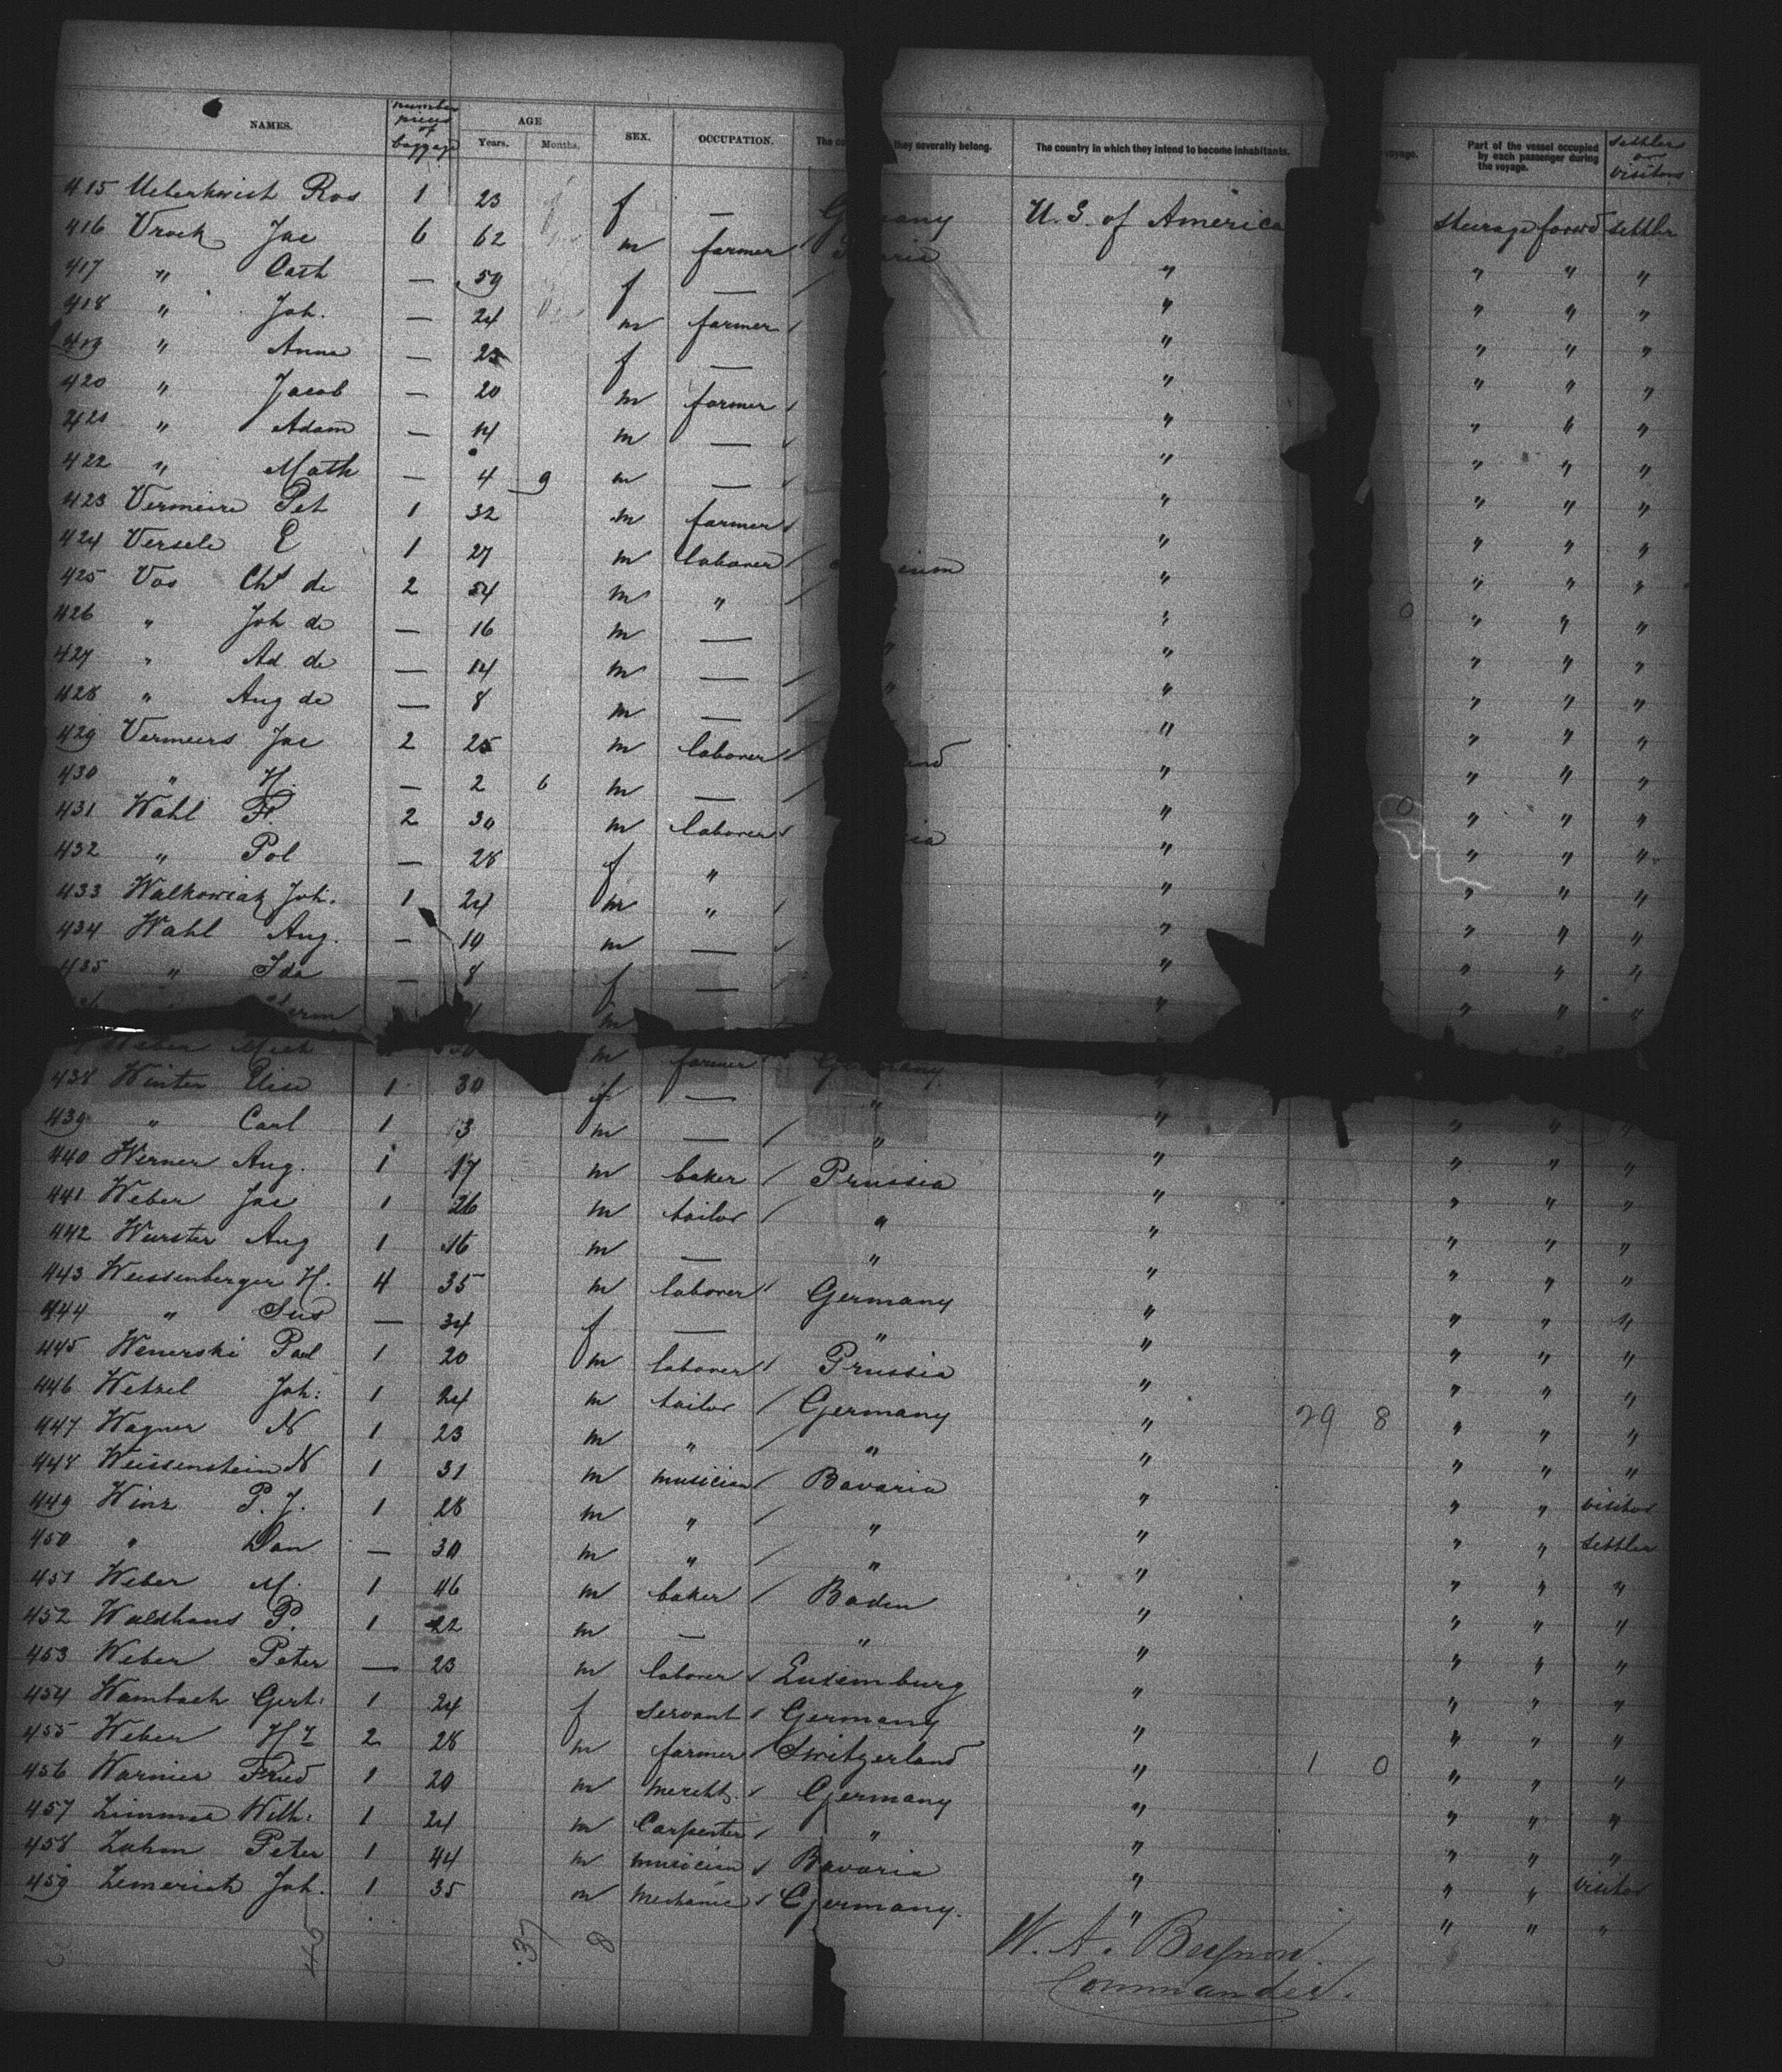 NAMES. number pieces of baggage AGE Years. Months. SEX. OCCUPATION. The co they severally belong. The country in which they intend to become inhabitants. voyage. Part of the vessel occupied by each passenger during the voyage. Settlers or visitors
415 Ueberkwich Ros 1 23 f — G many U. S. of America Steerage forwd settler
416 Vrock Jac 6 62 m farmer " " " "
417 " Cath — 59 f — " " " "
418 " Joh. — 24 m farmer " " " "
419 " Anna — 25 f — " " " "
420 " Jacob — 20 m farmer " " " "
421 " Adam — 14 m — " " " "
422 " Math — 4 9 m — " " " "
423 Vermeire Pet 1 32 m farmer " " " "
424 Versele E 1 27 m laborer ium " " " "
425 Vos Cht de 2 54 m " " " " "
426 " Joh de — 16 m — " " " "
427 " Ad de — 14 m — " " " " "
428 " Aug de — 8 m — " " " " "
429 Vermeers Jac 2 25 m laborer and " " " "
430 " H. — 2 6 m — " " " "
431 Wahl F. 2 30 m laborer ia " " " "
432 " Pol — 28 f " " " " "
433 Walkowiak Joh. 1 24 m " " " " "
434 Wahl Aug. — 10 m — " " " "
435 " Ida — 8 f — " " " "
" erm m " " " "
Weber Mich m farmer Germany "
438 Winter Elise 1 30 f — " "
439 " Carl 1 13 m — " " " " "
440 Werner Aug. 1 17 m baker Prussia " " " "
441 Weber Jac 1 26 m tailor " " " " "
442 Wurster Aug 1 16 m — " " " " "
443 Weissenberger H. 4 35 m laborer Germany " " " "
444 " Sus — 34 f — " " " " "
445 Wenerski Paul 1 20 m laborer Prussia " " " "
446 Wetzel Joh: 1 24 m tailor Germany " 29 8 " " "
447 Wagner N 1 23 m " " " " " "
448 Weissenstein N 1 31 m musician Bavaria " " " visitor
449 Winz P. J. 1 28 m " " " " " settler
450 " Dan — 30 m " " " " " "
451 Weber M. 1 46 m baker Baden " " " "
452 Waldhans P. 1 22 m — " " " " "
453 Weber Peter — 23 m laborer Luxemburg " " " "
454 Wambach Gert: 1 24 f servant Germany " " " "
455 Weber Hr 2 28 m farmer Switzerland " 1 0 " " "
456 Warnier Fried 1 20 m merchts. Germany " " " "
457 Zimmer Wilh: 1 24 m Carpenter " " " " "
458 Zahm Peter 1 44 m musician Bavaria " " " visitor
459 Zemerich Joh. 1 35 m Mechanic Germany. " " " "
45 37 8
W. A.
Commander.